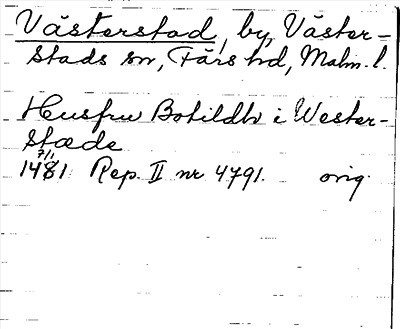 Västerstad, by, Väster-
stads sn, Färs hd, Malm. l.
Husfru Botildh i Wester-
stæde
7/1
1481 Rep. II nr 4791. orig.